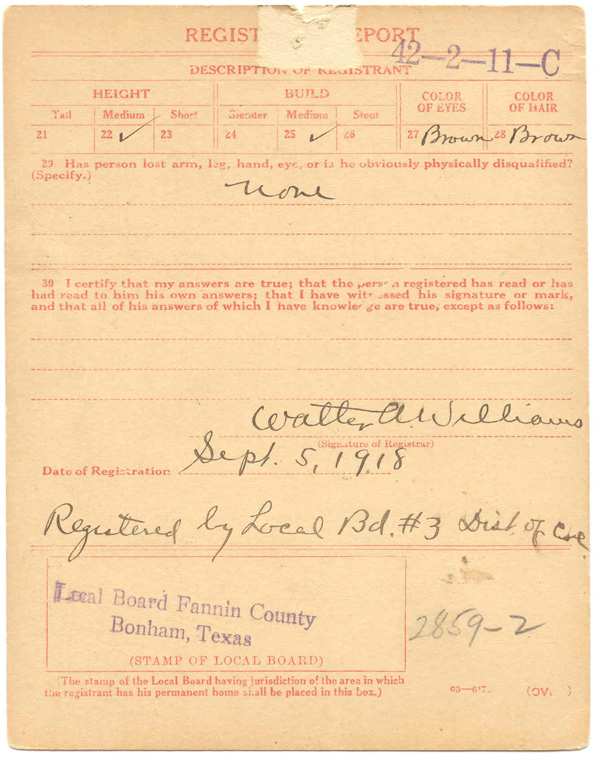 REGIST EPORT
42-2-11-C
DESCRIPTION OF REGISTRANT
HEIGHT BUILD COLOR OF EYES COLOR OF HAIR
Tall Medium Short Slender Medium Stout
21 22 ✓ 23 24 25 ✓ 26 27 Brown 28 Brown
29 Has person lost arm, leg, hand, eye, or is he obviously physically disqualified?
(Specify.)
None
30 I certify that my answers are true; that the person registered has read or has
had read to him his own answers; that I have witnessed his signature or mark,
and that all of his answers of which I have knowledge are true, except as follows:
Walter A. Williams
(Signature of Registrar)
Date of Registration Sept. 5, 1918
Registered by Local Bd. #3 Dist. of Col.
Local Board Fannin County
Bonham, Texas
2859-2
(STAMP OF LOCAL BOARD)
(The stamp of the Local Board having jurisdiction of the area in which
the registrant has his permanent home shall be placed in this box.)